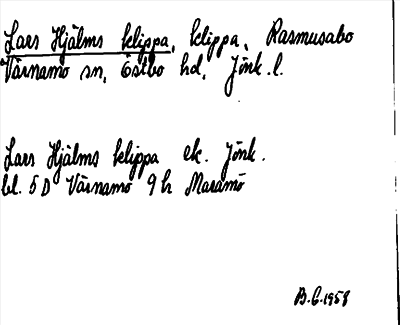 Lars Hjälms klippa, klippa, Rasmusabo
Värnamo sn, Östbo hd, Jönk. l.
Lars Hjälms klippa ek. Jönk.
bl. 5 D Värnamo 9 h Maramö
B.G. 1958